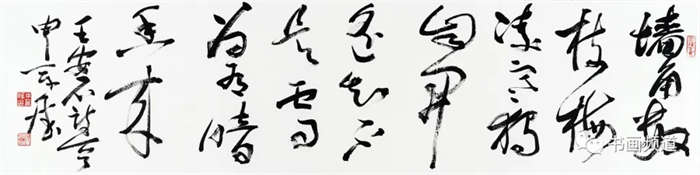 墙角数
枝梅
凌寒独
自开
遥知不
是雪
为有暗
香来
王安石诗
申万胜
书画频道